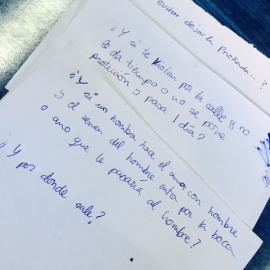 evitar dejarla preñada...?
¿Y si te violan por la calle y no
da tiempo o no se pone
protección y pasa 1 día?
¿Y si un hombre hace el amor con hombre
y el semen del hombre entra por la boca
o ano que le pasaría al hombre?
¿Y por donde sale?